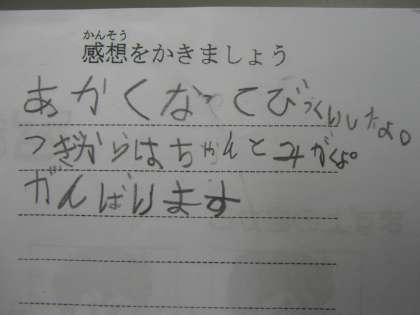 かんそう
感想をかきましょう
あかくなってびっくりしたよ。
つぎからはちゃんとみがくよ。
がんばります